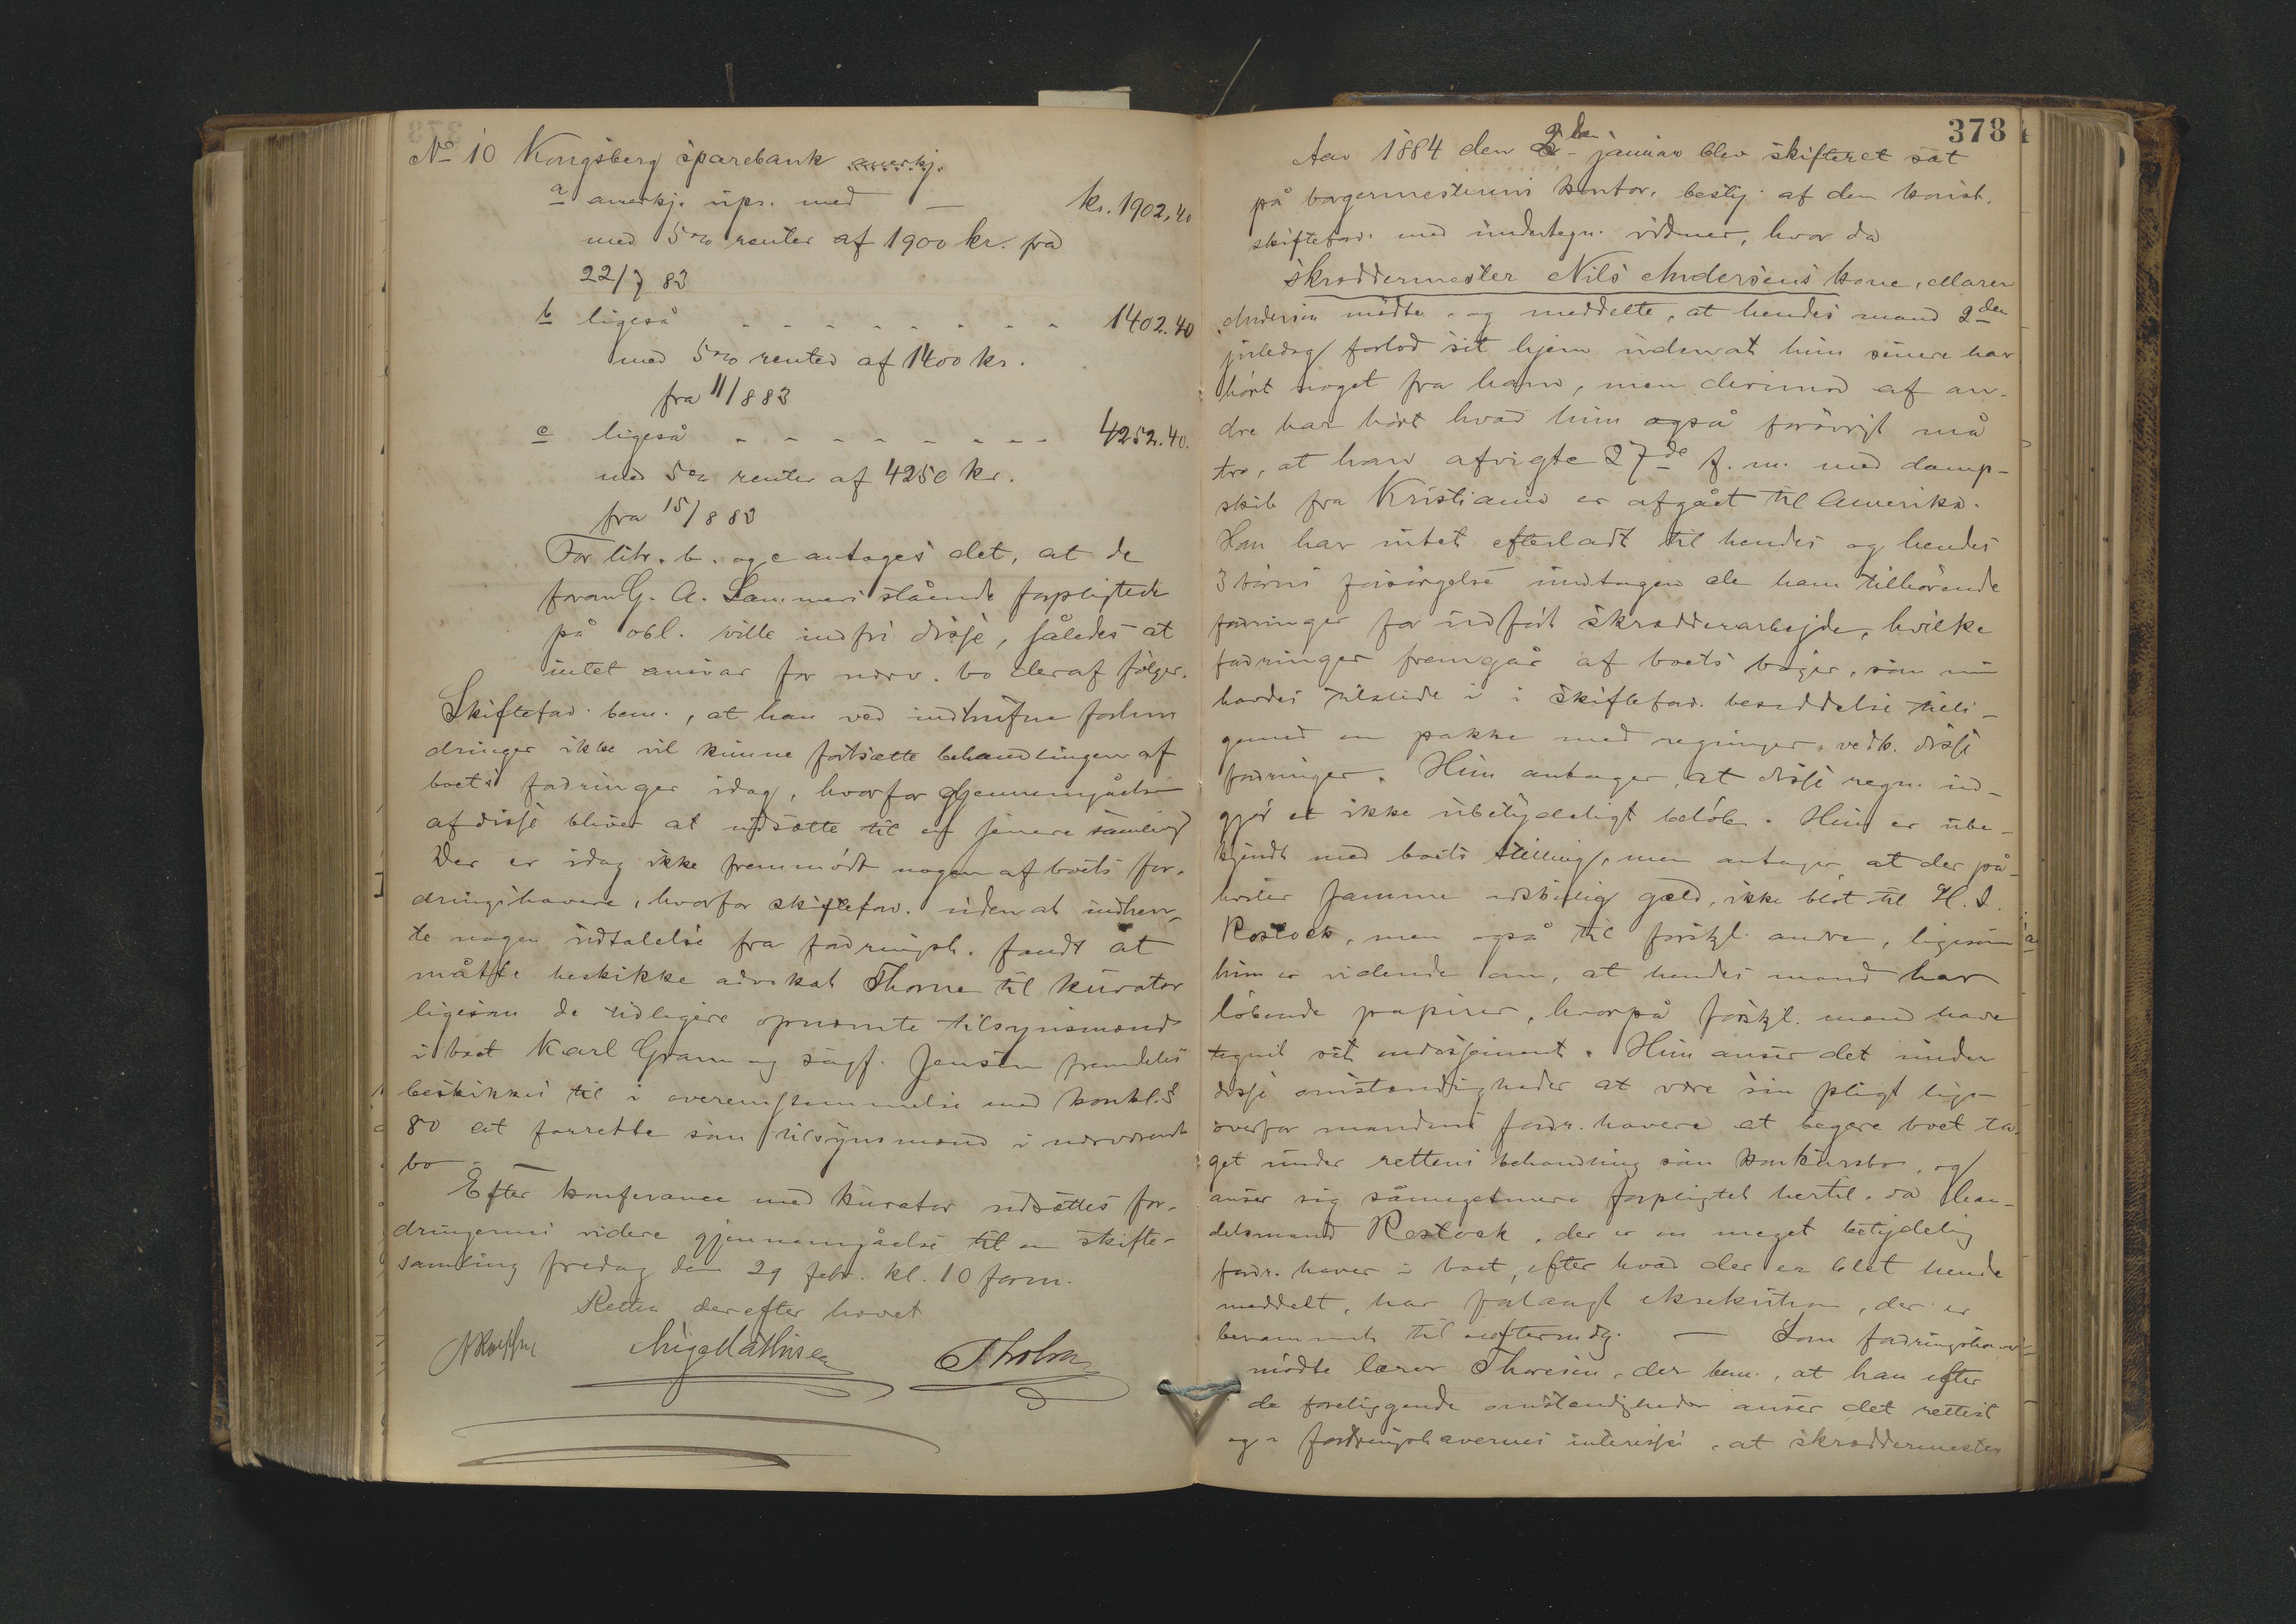 No 10 Kongsberg sparebank anerkj.
a anerkj. upr. med — kr. 1902,40
med 5% renter af 1900 kr. fra
22/7 83
b ligeså - - - - - - - - - 1402.40
med 5% renter af 1400 kr.
fra 11/8 83
c ligeså - - - - - - - - - 4252.40.
med 5% renter af 4250 kr.
fra 15/8 83
For litr. b. og c antages det, at de
foran G. A. Lammers stående forpligtede
på obl. ville indfri disse, således at
intet ansvar for nærv. bo deraf følger.
Skiftefor. bem., at han ved indtrufne forhin
dringer ikke vil kunne fortsætte behandlingen af
boets fordringer idag, hvorfor gjennemgåelsen
af disse bliver at udsætte til en senere samling
Der er idag ikke fremmødt nogen af boets for-
dringshavere, hvorfor skiftefor. uden at indhen-
te nogen udtalelse fra fordringsh. fandt at
måtte beskikke advokat Thorne til kurator
ligesom de tidligere opnævnte tilsynsmænd
i boet Karl Gram og sagf. Jensen fremdeles
beskikkes til i overensstemmelse med konkl. §
80 at forrette som tilsynsmænd i nærværende
bo –
Efter konferance med kurator udsættes for-
dringernes videre gjennemgåelse til en skifte-
samling fredag den 29 febr. kl. 10 form.
Retten derefter hævet
Inge Mathisen Tholm
378
Aar 1884 den 2den januar blev skifteret sat
på borgermesterens kontor, bestyr. af den konst.
skiftefor. med undertegn. vidner, hvor da
skræddermester Nils Andersens kone, Maren
Andersen mødte og meddelte, at hendes mand 2den
juledag forlod sit hjem uden at hun senere har
hørt noget fra ham, men derimod af an-
dre har hørt hvad hun også forøvrigt må
tro, at han afvigte 27de f. m. med damp-
skib fra Kristiania er afgået til Amerika.
Han har intet efterladt til hendes og hendes
3 børns forsørgelse undtagen de ham tilhørende
fordringer for udført skrædderarbejde, hvilke
fordringer fremgår af boets bøger, som nu
havdes tilstede i i skiftefor. besiddelse tilli-
gemed en pakke med regninger vedk. disse
fordringer. Hun antager, at disse regn. ud-
gjør et ikke ubetydeligt beløb. Hun er ube-
kjendt med boets stilling, men antager at der på-
hviler samme adskillig gæld, ikke blot til H. I.
Rostock, men også til forskjl. andre, ligesom
hun er vidende om, at hendes mand har
løbende papirer, hvorpå forskjl. mænd have
tegnet sit endossement. Hun anser det under
disse omstændigheder at være sin pligt lige-
overfor mandens fordr. havere at begære boet ta-
get under rettens behandling som konkursbo, og
anser sig såmegetmere forpligtet hertil, da han-
delsmand Rostock, der er en meget betydelig
fordr. haver i boet, efter hvad der er blet hende
meddelt, har forlangt eksekution, der er
berammet til eftermdg. — Som fordringshaver
mødte lærer Thoresen, der bem., at han efter
de foreliggende omstændigheder anser det rettest
og i fordringshavernes interesse, at skræddermester